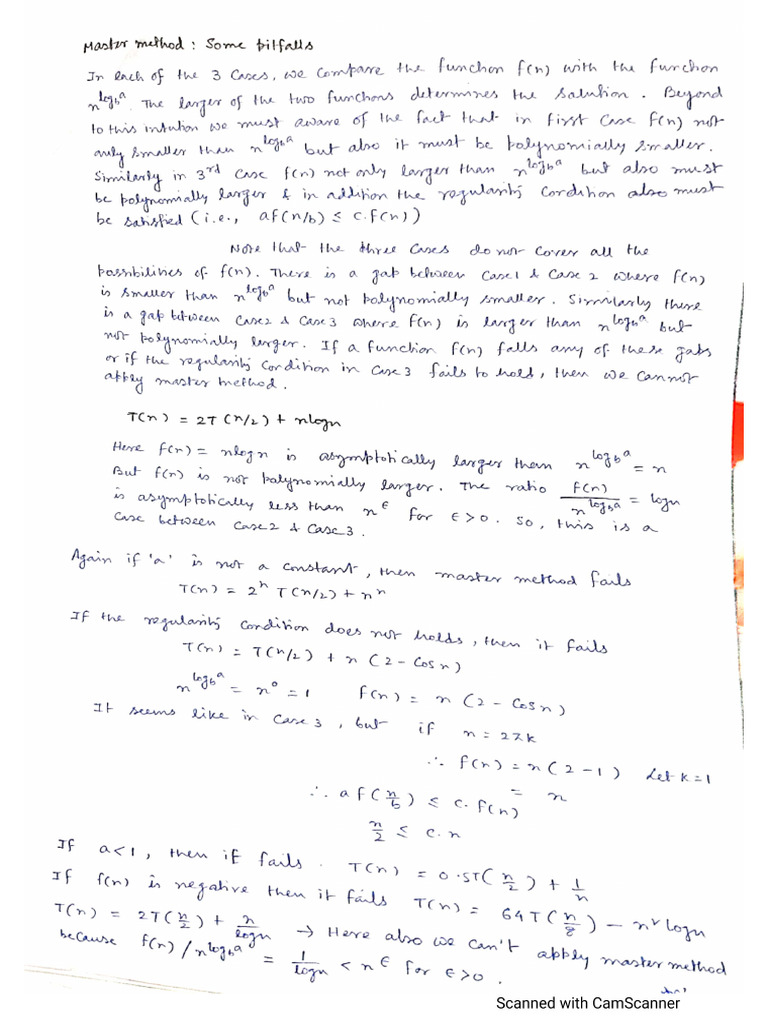 Master method : Some pitfalls
In each of the 3 cases, we compare the function f(n) with the function
n^{log_b a}. The larger of the two functions determines the solution. Beyond
to this intution we must aware of the fact that in first case f(n) not
only smaller than n^{log_b a} but also it must be polynomially smaller.
Similarly in 3rd case f(n) not only larger than n^{log_b a} but also must
be polynomially larger & in addition the regularity condition also must
be satisfied (i.e., af(n/b) ≤ c.f(n))
Note that the three cases do not cover all the
possibilities of f(n). There is a gap between case1 & case 2 where f(n)
is smaller than n^{log_b a} but not polynomially smaller. Similarly there
is a gap between case2 & case3 where f(n) is larger than n^{log_b a} but
not polynomially larger. If a function f(n) falls any of these gaps
or if the regularity condition in case 3 fails to hold, then we cannot
apply master method.
T(n) = 2T(n/2) + nlogn
Here f(n) = nlogn is asymptotically larger than n^{log_b a} = n
But f(n) is not polynomially larger. The ratio f(n)/n^{log_b a} = logn
is asymptotically less than n^ε for ε>0. So, this is a
case between case2 & case3.
Again if 'a' is not a constant, then master method fails
T(n) = 2^n T(n/2) + n^n
If the regularity condition does not holds, then it fails
T(n) = T(n/2) + n(2-cosn)
n^{log_b a} = n^0 = 1 f(n) = n(2-cosn)
It seems like in case 3, but if n = 2πk
∴ f(n) = n(2-1) Let k=1
= n
∴ af(n/b) ≤ c.f(n)
n/2 ≤ c.n
If a<1, then it fails. T(n) = 0.5T(n/2) + 1/n
If f(n) is negative then it fails T(n) = 64T(n/8) - n²logn
T(n) = 2T(n/2) + n/logn → Here also we can't apply master method
because f(n)/n^{log_b a} = 1/logn < n^ε for ε>0.
Scanned with CamScanner